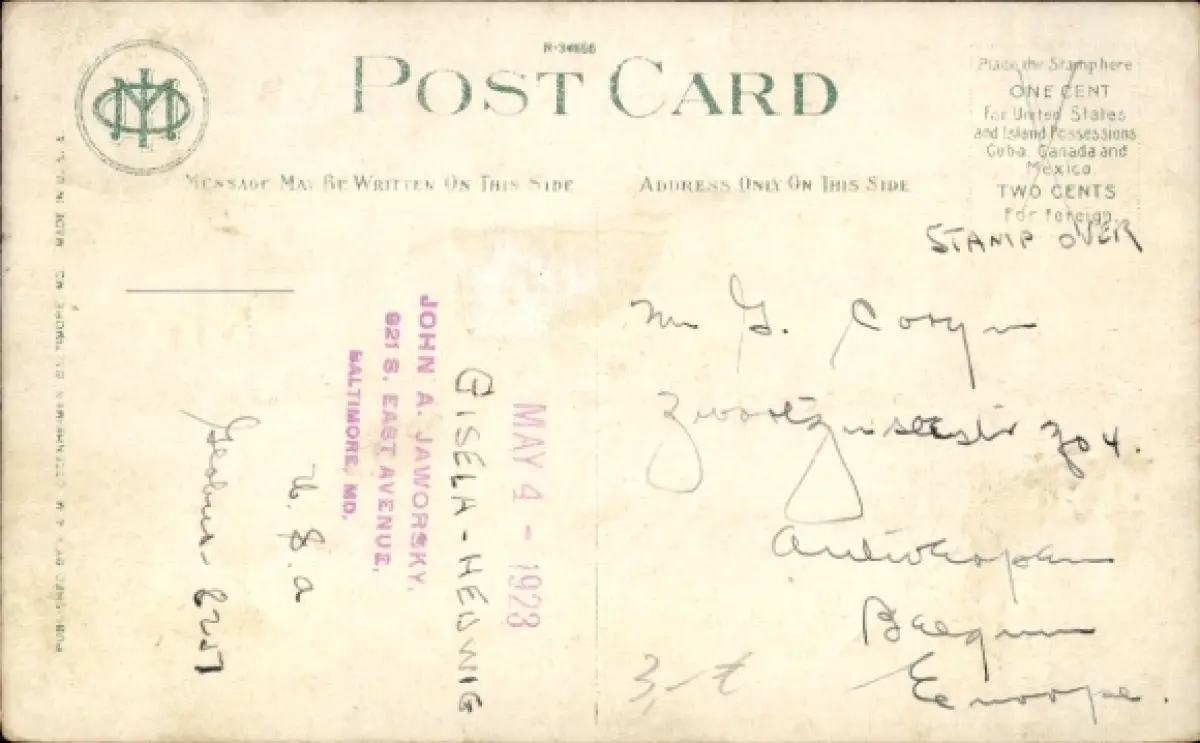 R-34666
POST CARD
MESSAGE MAY BE WRITTEN ON THIS SIDE
ADDRESS ONLY ON THIS SIDE
Place the Stamp here
ONE CENT
For United States
and Island Possessions
Cuba, Canada and
Mexico.
TWO CENTS
For Foreign.
STAMP OVER
MADE IN U.S.A.
MAY 4 - 1923
GISELA-HEDWIG
JOHN A. JAWORSKY,
921 S. EAST AVENUE,
BALTIMORE, MD.
U. S. A
8257
G.
304.
Antwerpen
Belgium
Europe.